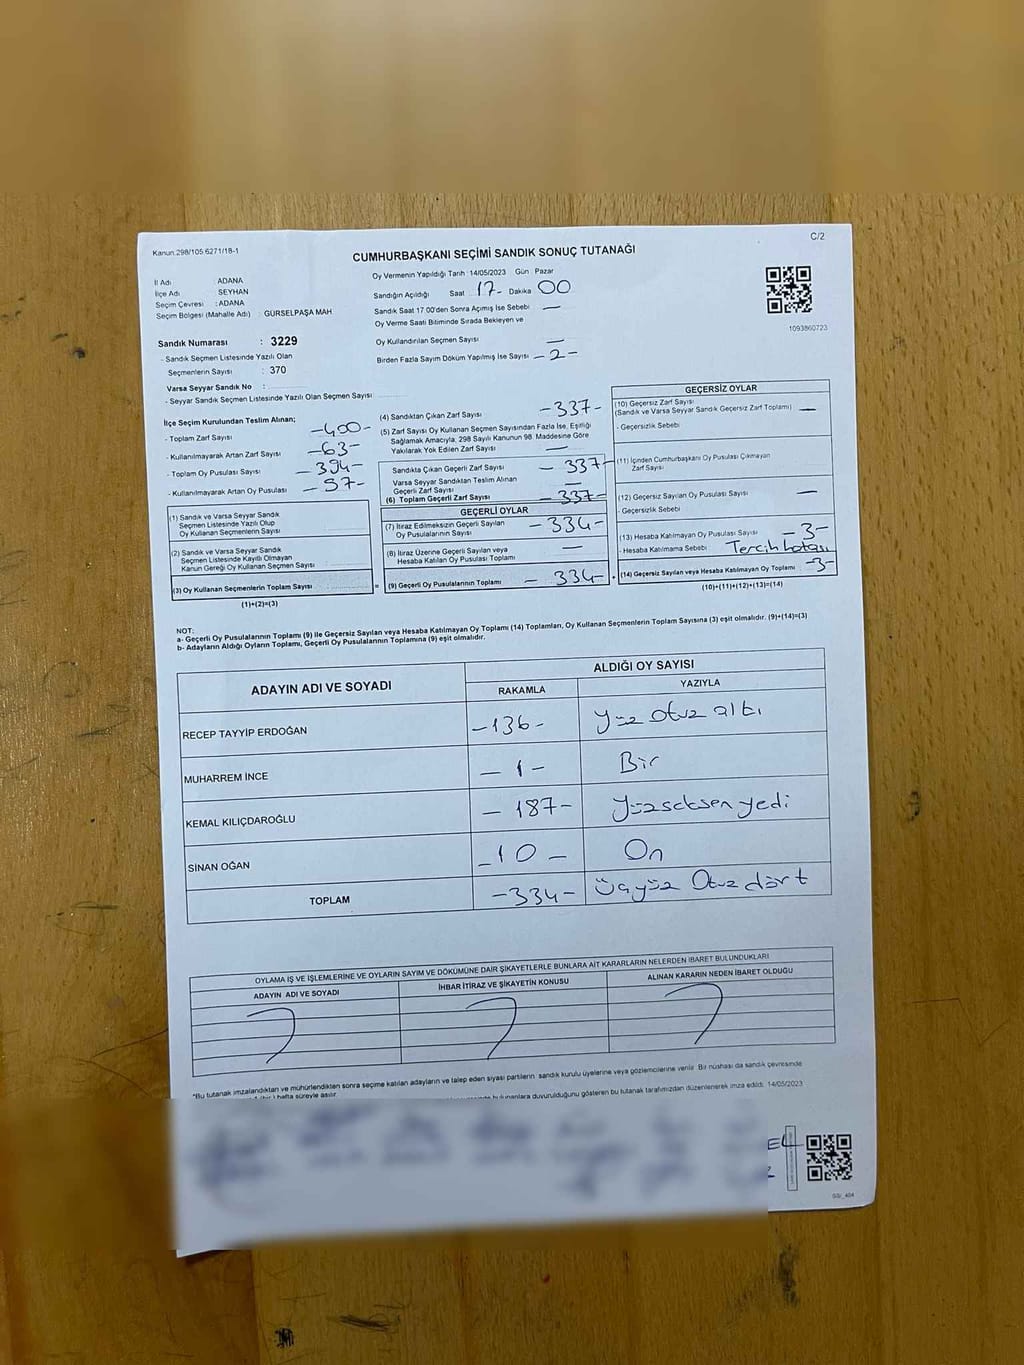 Kanun 298/105 6271/18-1
C/2
CUMHURBAŞKANI SEÇİMİ SANDIK SONUÇ TUTANAĞI
İl Adı : ADANA
İlçe Adı : SEYHAN
Seçim Çevresi : ADANA
Seçim Bölgesi (Mahalle Adı) : GÜRSELPAŞA MAH
Sandık Numarası : 3229
- Sandık Seçmen Listesinde Yazılı Olan
Seçmenlerin Sayısı : 370
Varsa Seyyar Sandık No :
- Seyyar Sandık Seçmen Listesinde Yazılı Olan Seçmen Sayısı
Oy Vermenin Yapıldığı Tarih 14/05/2023 Gün Pazar
Sandığın Açıldığı Saat 17- Dakika 00
Sandık Saat 17 00'den Sonra Açımış İse Sebebi —
Oy Verme Saati Bitiminde Sırada Bekleyen ve
Oy Kullandırılan Seçmen Sayısı —
Birden Fazla Sayım Döküm Yapılmış İse Sayısı - 2 -
1093860723
İlçe Seçim Kurulundan Teslim Alınan;
- Toplam Zarf Sayısı -400-
- Kullanılmayarak Artan Zarf Sayısı -63-
- Toplam Oy Pusulası Sayısı -394-
- Kullanılmayarak Artan Oy Pusulası -57-
(1) Sandık ve Varsa Seyyar Sandık
Seçmen Listesinde Yazılı Olup
Oy Kullanan Seçmenlerin Sayısı
(2) Sandık ve Varsa Seyyar Sandık
Seçmen Listesinde Kayıtlı Olmayan
Kanun Gereği Oy Kullanan Seçmen Sayısı
(3) Oy Kullanan Seçmenlerin Toplam Sayısı =
(1)+(2)=(3)
(4) Sandıktan Çıkan Zarf Sayısı -337-
(5) Zarf Sayısı Oy Kullanan Seçmen Sayısından Fazla İse, Eşitliği
Sağlamak Amacıyla, 298 Sayılı Kanunun 98. Maddesine Göre
Yakılarak Yok Edilen Zarf Sayısı —
Sandıkta Çıkan Geçerli Zarf Sayısı - 337-
Varsa Seyyar Sandıktan Teslim Alınan
Geçerli Zarf Sayısı —
(6) Toplam Geçerli Zarf Sayısı - 337-
GEÇERLİ OYLAR
(7) İtiraz Edilmeksizin Geçerli Sayılan
Oy Pusulalarının Sayısı - 334-
(8) İtiraz Üzerine Geçerli Sayılan veya
Hesaba Katılan Oy Pusulası Toplamı —
(9) Geçerli Oy Pusulalarının Toplamı - 334- +
GEÇERSİZ OYLAR
(10) Geçersiz Zarf Sayısı
(Sandık ve Varsa Seyyar Sandık Geçersiz Zarf Toplamı) —
- Geçersizlik Sebebi
(11) İçinden Cumhurbaşkanı Oy Pusulası Çıkmayan
Zarf Sayısı
(12) Geçersiz Sayılan Oy Pusulası Sayısı —
- Geçersizlik Sebebi
(13) Hesaba Katılmayan Oy Pusulası Sayısı - 3-
- Hesaba Katılmama Sebebi Tercih hatası
(14) Geçersiz Sayılan veya Hesaba Katılmayan Oy Toplamı -3-
(10)+(11)+(12)+(13)=(14)
NOT:
a- Geçerli Oy Pusulalarının Toplamı (9) ile Geçersiz Sayılan veya Hesaba Katılmayan Oy Toplamı (14) Toplamları, Oy Kullanan Seçmenlerin Toplam Sayısına (3) eşit olmalıdır. (9)+(14)=(3)
b- Adayların Aldığı Oyların Toplamı, Geçerli Oy Pusulalarının Toplamına (9) eşit olmalıdır.
ADAYIN ADI VE SOYADI
ALDIĞI OY SAYISI
RAKAMLA YAZIYLA
RECEP TAYYİP ERDOĞAN -136- Yüz otuz altı
MUHARREM İNCE - 1 - Bir
KEMAL KILIÇDAROĞLU - 187- Yüzseksen yedi
SİNAN OĞAN - 10 - On
TOPLAM -334- Üçyüz Otuz dört
OYLAMA İŞ VE İŞLEMLERİNE VE OYLARIN SAYIM VE DÖKÜMÜNE DAİR ŞİKAYETLERLE BUNLARA AİT KARARLARIN NELERDEN İBARET BULUNDUKLARI
ADAYIN ADI VE SOYADI İHBAR İTİRAZ VE ŞİKAYETİN KONUSU ALINAN KARARIN NEDEN İBARET OLDUĞU
*Bu tutanak imzalandıktan ve mühürlendikten sonra seçime katılan adayların ve talep eden siyasi partilerin sandık kurulu üyelerine veya gözlemcilerine verilir. Bir nüshası da sandık çevresinde
(bir) hafta süreyle asılır.
bulunanlara duyurulduğunu gösteren bu tutanak tarafımızdan düzenlenerek imza edildi. 14/05/2023